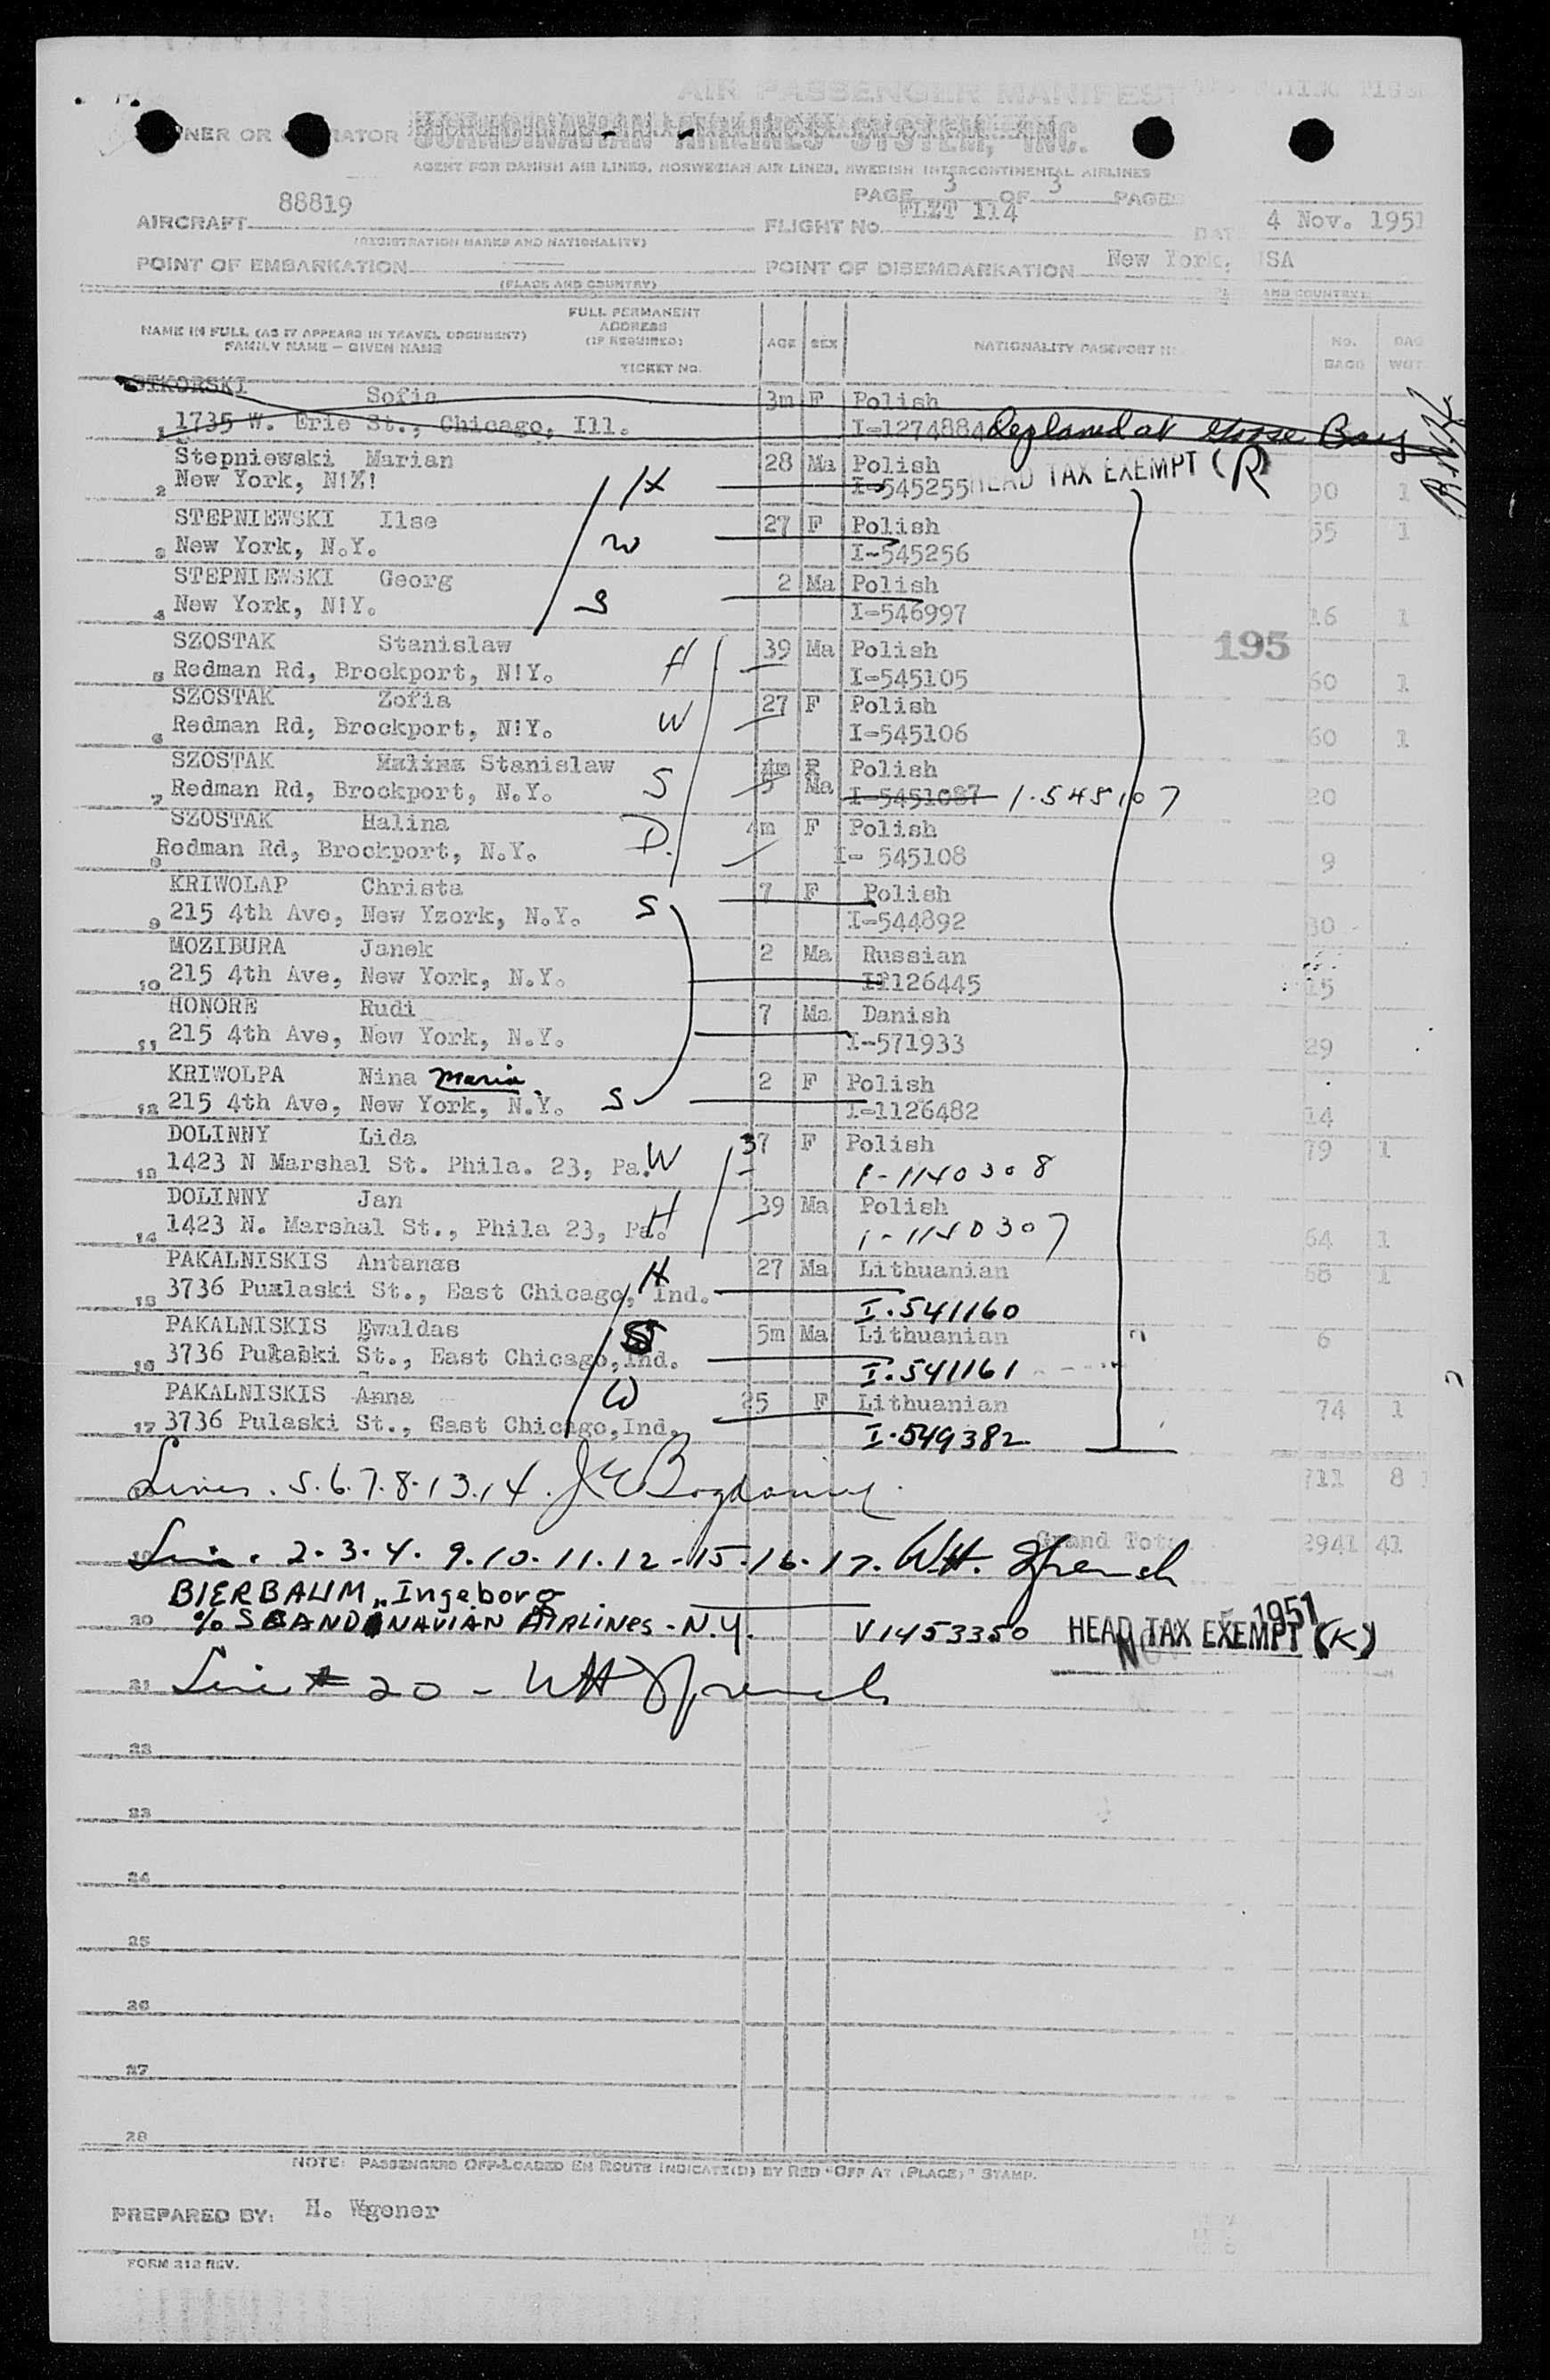 AIR PASSENGER MANIFEST
SCANDINAVIAN AIRLINES SYSTEM, INC.
AGENT FOR DANISH AIR LINES, NORWEGIAN AIR LINES, SWEDISH INTERCONTINENTAL AIRLINES
PAGE 3 OF 3 PAGES
AIRCRAFT 88819 FLIGHT NO. FLZT 114 4 Nov. 1951
(REGISTRATION MARKS AND NATIONALITY)
POINT OF EMBARKATION POINT OF DISEMBARKATION New York, USA
(PLACE AND COUNTRY) AND COUNTRY)
NAME IN FULL (AS IT APPEARS IN TRAVEL DOCUMENT) FULL PERMANENT ADDRESS (IF REQUIRED) AGE SEX NATIONALITY PASSPORT NO. BAGG WGT
FAMILY NAME - GIVEN NAME TICKET NO.
SIKORSKI Sofia 3m F Polish
1 1735 W. Erie St., Chicago, Ill. I-1274884 Deplaned at Goose Bay
Stepniewski Marian 28 Ma Polish
2 New York, N!Y! H I-545255 HEAD TAX EXEMPT (R) 90 1
STEPNIEWSKI Ilse 27 F Polish 55 1
3 New York, N.Y. W I-545256
STEPNIEWSKI Georg 2 Ma Polish
4 New York, N!Y. S I-546997 16 1
195
SZOSTAK Stanislaw 39 Ma Polish
5 Redman Rd, Brockport, N!Y. H I-545105 60 1
SZOSTAK Zofia 27 F Polish
6 Redman Rd, Brockport, N!Y. W I-545106 60 1
SZOSTAK Malina Stanislaw 4m F Polish
7 Redman Rd, Brockport, N.Y. S 5 Ma I-5451087 1-545107 20
SZOSTAK Halina 4m F Polish
8 Redman Rd, Brockport, N.Y. D. I- 545108 9
KRIWOLAP Christa 7 F Polish
9 215 4th Ave, New Yzork, N.Y. S I-544892 30
MOZIBURA Janek 2 Ma Russian
10 215 4th Ave, New York, N.Y. I1126445 15
HONORE Rudi 7 Ma Danish
11 215 4th Ave, New York, N.Y. I-571933 29
KRIWOLPA Nina Maria 2 F Polish
12 215 4th Ave, New York, N.Y. S I-1126482 14
DOLINNY Lida 37 F Polish 79 1
13 1423 N Marshal St. Phila. 23, Pa. W 1-1140308
DOLINNY Jan 39 Ma Polish
14 1423 N. Marshal St., Phila 23, Pa. H 1-1140307 64 1
PAKALNISKIS Antanas 27 Ma Lithuanian 68 1
15 3736 Puxlaski St., East Chicago, Ind. H I-541160
PAKALNISKIS Ewaldas 5m Ma Lithuanian 6
16 3736 Pulaski St., East Chicago, Ind. S I-541161
PAKALNISKIS Anna 25 F Lithuanian 74 1
17 3736 Pulaski St., East Chicago, Ind. W I-549382
Lines. 5.6.7.8.13.14. 711 8
Grand Total 2941 41
Line. 2.3.4. 9.10.11.12-15.16.17. WH. French
BIERBAUM, Ingeborg
20 % SCANDINAVIAN AIRLINES - N.Y. V1453350 HEAD TAX EXEMPT (K) 1951
21 Line # 20 - WH French
22
23
24
25
26
27
28
NOTE: PASSENGERS OFF-LOADED EN ROUTE INDICATE(D) BY RED "OFF AT (PLACE)" STAMP.
PREPARED BY: H. Wgoner
FORM 212 REV.